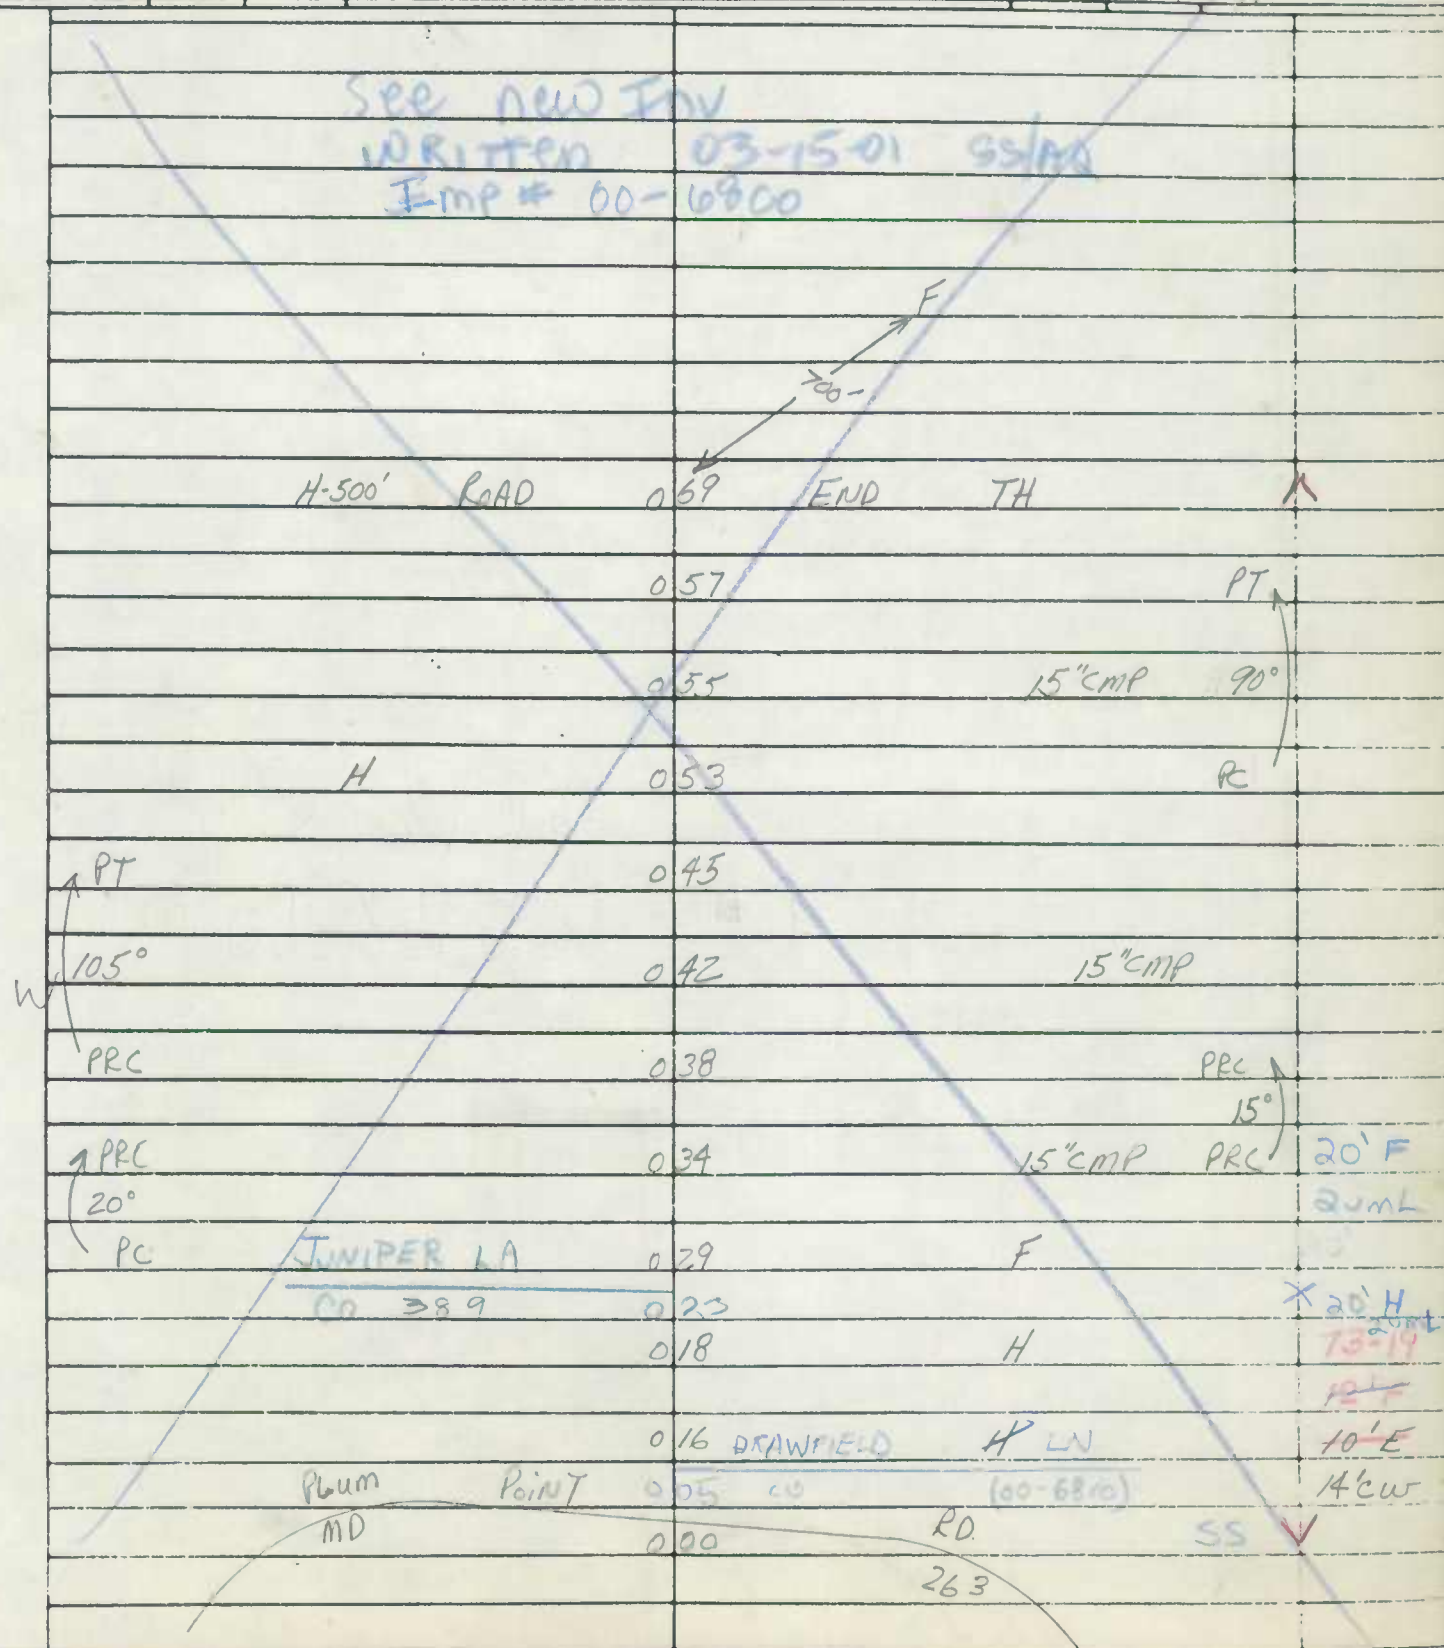 See new Inv
WRITTEN 03-15-01
Imp # 00-6800
F
700-
H-500' ROAD 0 69 END TH
0 57 PT
0 55 15"CMP 90°
H 0 53 PC
PT 0 45
W 105° 0 42 15"CMP
PRC 0 38 PRC
15°
PRC 0 34 15"CMP PRC 20' F
20° 20mL
PC JUNIPER LA 0 29 F
CO 389 0 23 X 20' H 20mL
0 18 H 73-19
0 16 H LN 10' E
PLUM POINT 0 05 CO (00-6810) 14'CW
MD 0 00 RD. SS
263